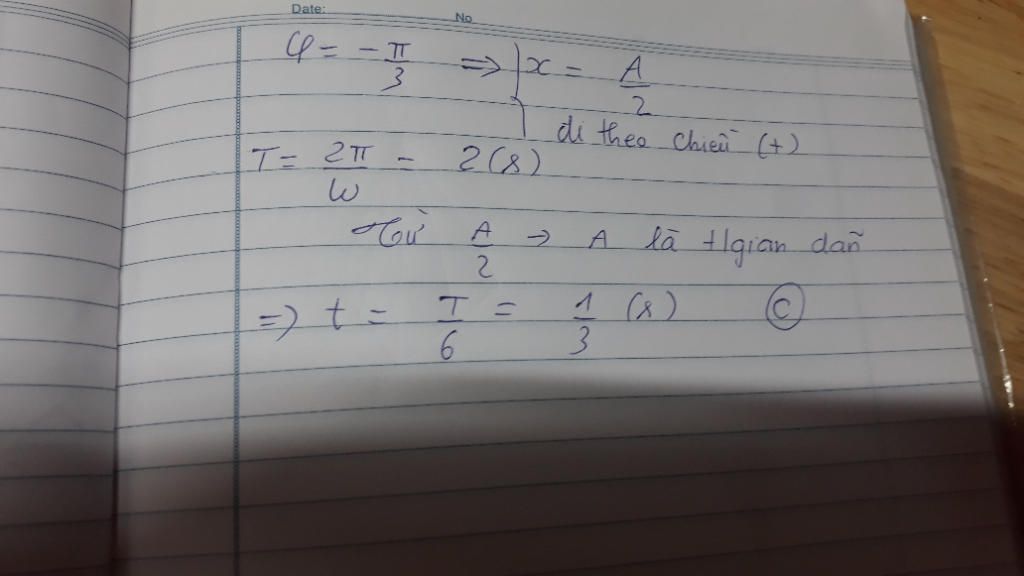 Date:
No
φ = -π/3 => { x = A/2
đi theo chiều (+)
T = 2π/ω = 2(s)
Từ A/2 → A là t/gian dãn
=> t = T/6 = 1/3 (s) Ⓒ